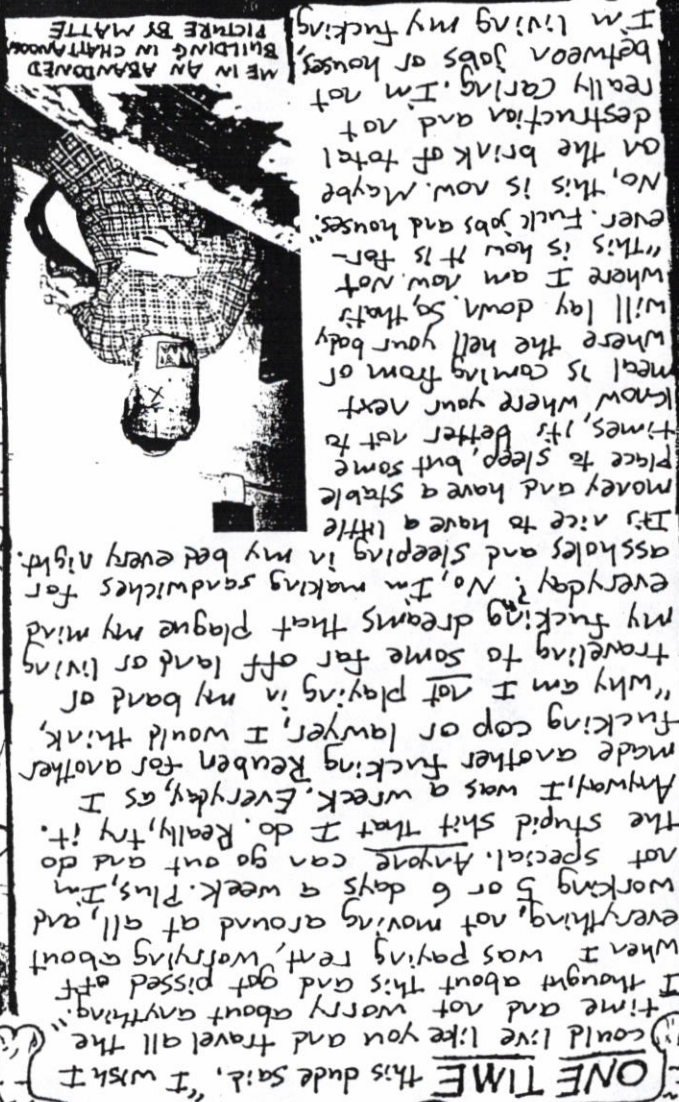 ONE TIME this dude said, "I wish I
could live like you and travel all the
time and not worry about anything."
I thought about this and got pissed off
when I was paying rent, worrying about
everything, not moving around at all, and
working 5 or 6 days a week. Plus, I'm
not special. Anyone can go out and do
the stupid shit that I do. Really, try it.
Anyway, I was a wreck. Everyday, as I
made another fucking Reuben for another
fucking cop or lawyer, I would think,
"why am I not playing in my band or
traveling to some far off land or living
my fucking dreams that plague my mind
everyday?" No, I'm making sandwiches for
assholes and sleeping in my bed every night.
It's nice to have a little
money and have a stable
place to sleep, but some
times, it's better not to
know where your next
meal is coming from or
where the hell your body
will lay down. So, that's
where I am now. Not
"This is how it is for-
ever. Fuck jobs and houses."
No, this is now. Maybe
on the brink of total
destruction and not
really caring. I'm not
between jobs or houses,
I'm living my fucking
ME IN AN ABANDONED
BUILDING IN CHATTANOOGA
PICTURE BY MATTE